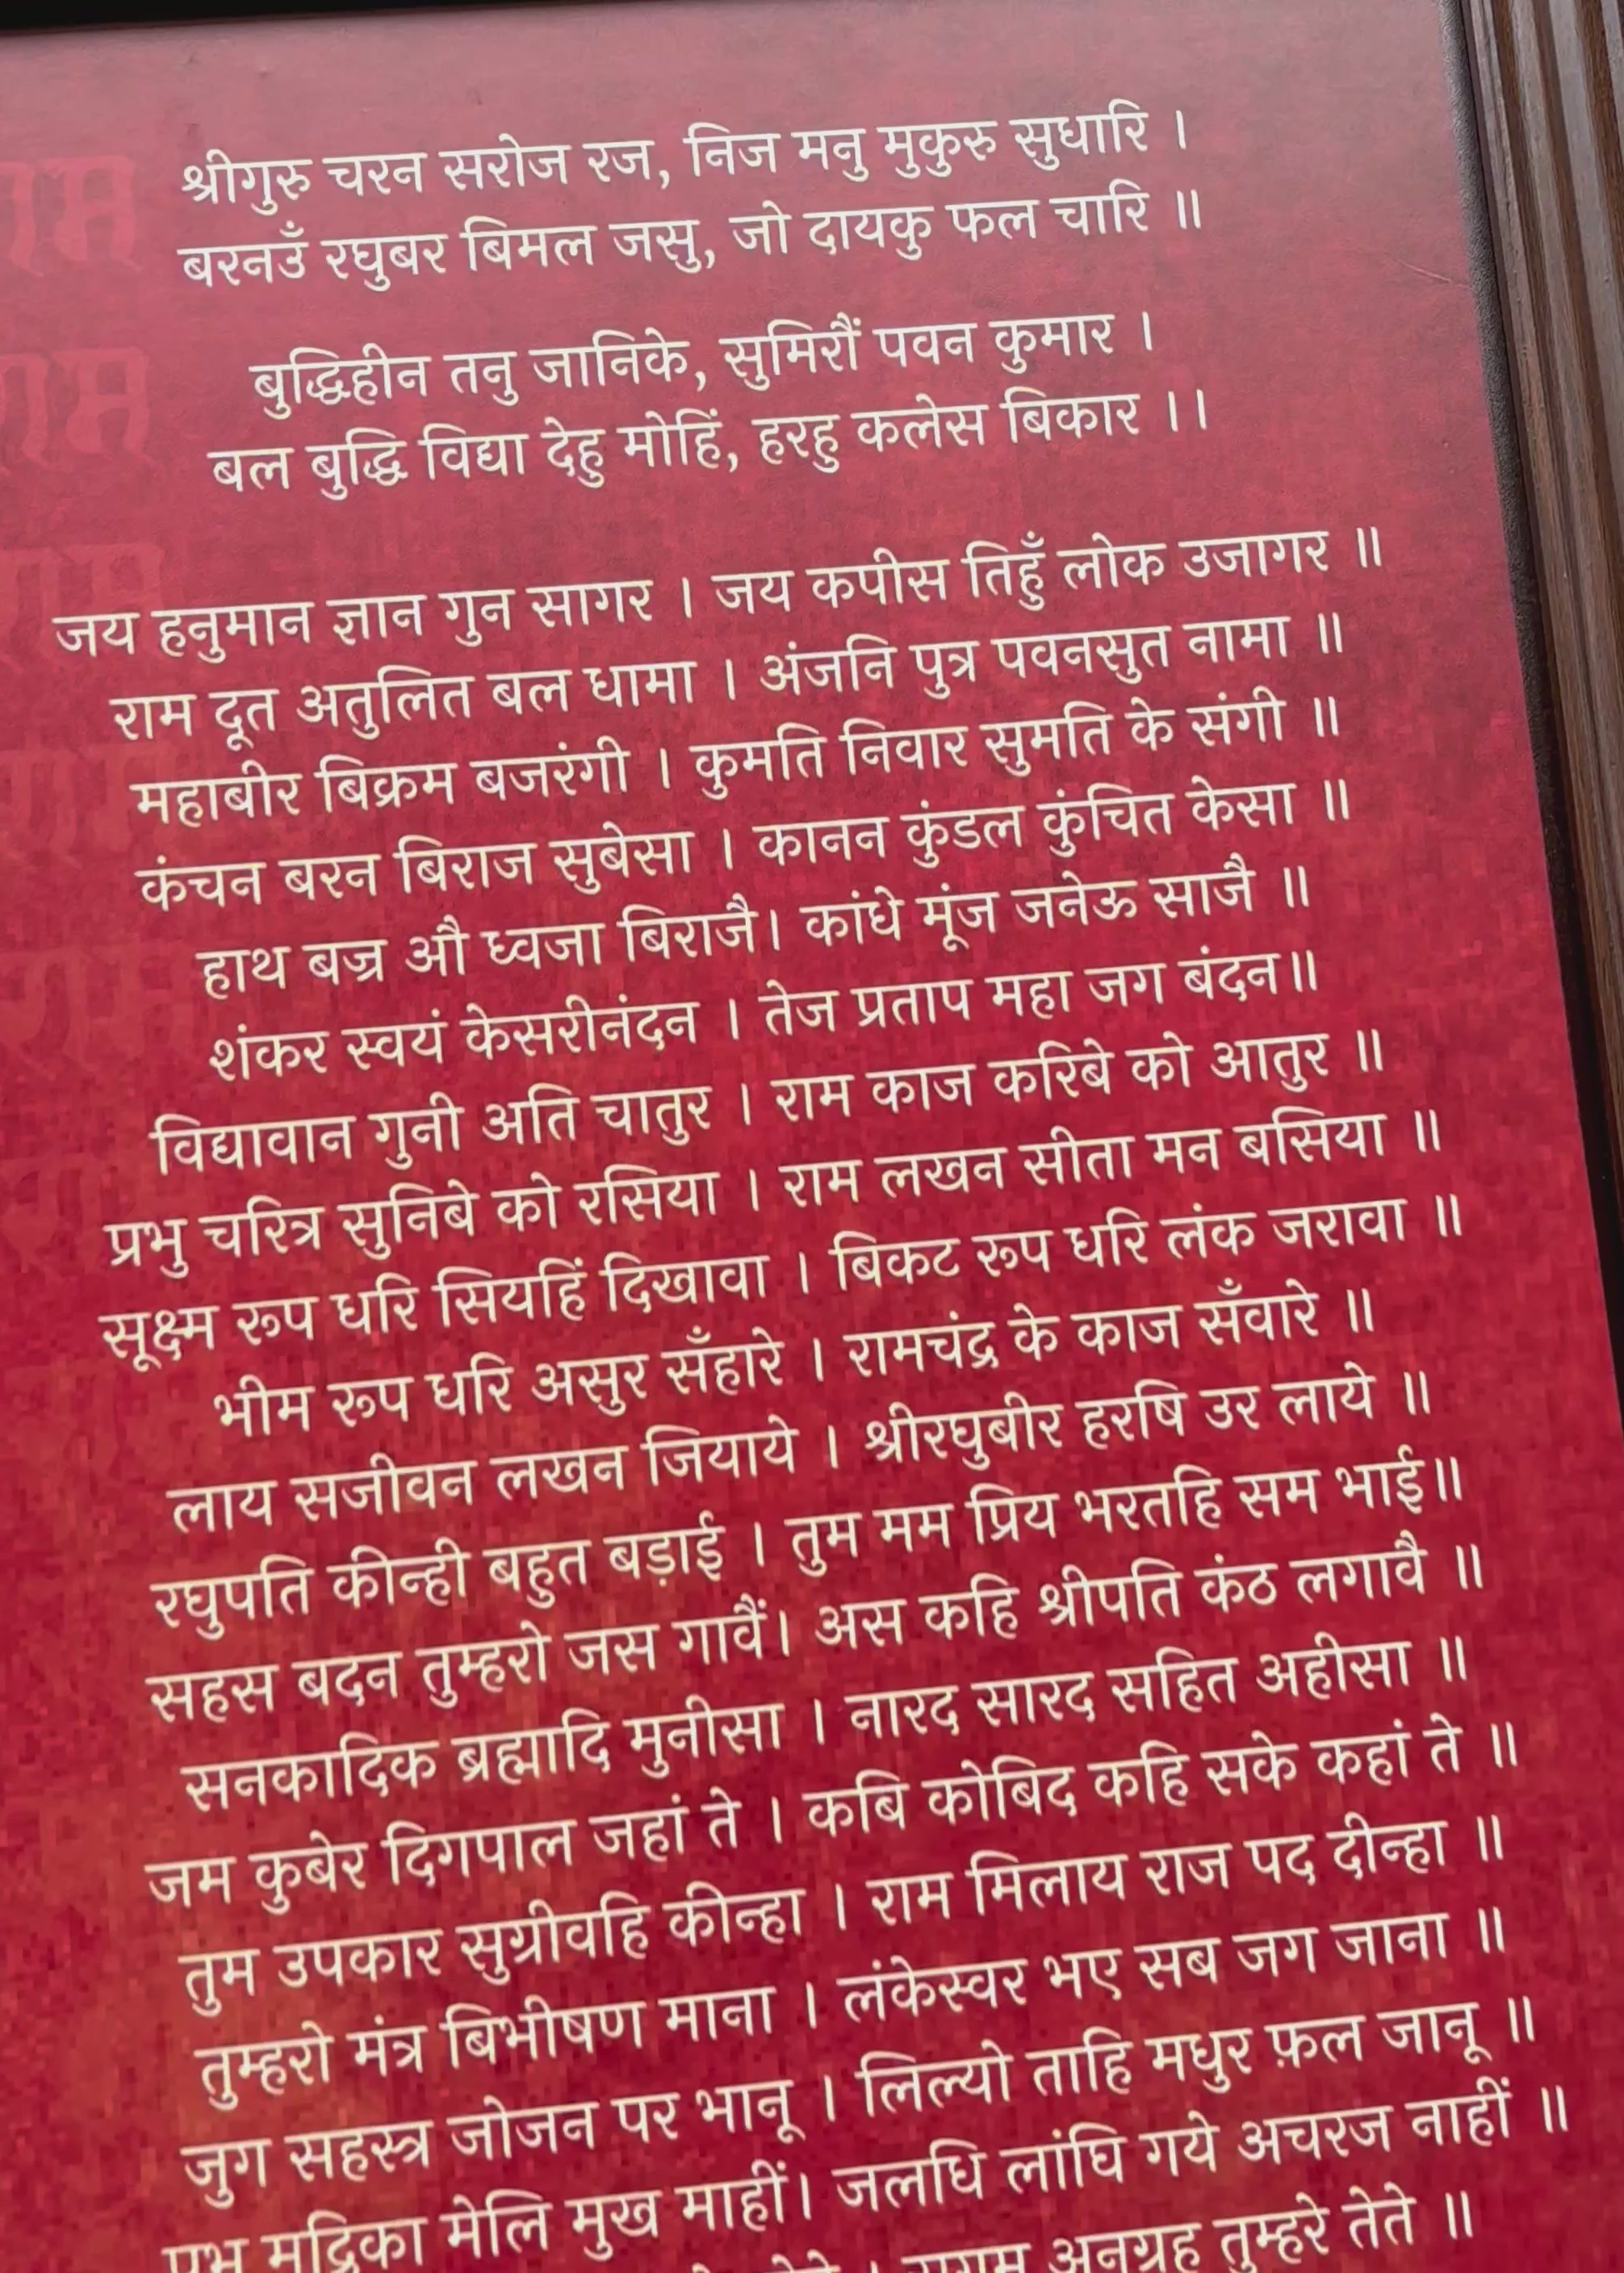 श्रीगुरु चरन सरोज रज, निज मनु मुकुरु सुधारि ।
बरनउँ रघुबर बिमल जसु, जो दायकु फल चारि ॥
बुद्धिहीन तनु जानिके, सुमिरौं पवन कुमार ।
बल बुद्धि विद्या देहु मोहिं, हरहु कलेस बिकार ।।
जय हनुमान ज्ञान गुन सागर । जय कपीस तिहुँ लोक उजागर ॥
राम दूत अतुलित बल धामा । अंजनि पुत्र पवनसुत नामा ॥
महाबीर बिक्रम बजरंगी । कुमति निवार सुमति के संगी ॥
कंचन बरन बिराज सुबेसा । कानन कुंडल कुंचित केसा ॥
हाथ बज्र औ ध्वजा बिराजै। कांधे मूंज जनेऊ साजै ॥
शंकर स्वयं केसरीनंदन । तेज प्रताप महा जग बंदन॥
विद्यावान गुनी अति चातुर । राम काज करिबे को आतुर ॥
प्रभु चरित्र सुनिबे को रसिया । राम लखन सीता मन बसिया ॥
सूक्ष्म रूप धरि सियहिं दिखावा । बिकट रूप धरि लंक जरावा ॥
भीम रूप धरि असुर सँहारे । रामचंद्र के काज सँवारे ॥
लाय सजीवन लखन जियाये । श्रीरघुबीर हरषि उर लाये ॥
रघुपति कीन्ही बहुत बड़ाई । तुम मम प्रिय भरतहि सम भाई॥
सहस बदन तुम्हरो जस गावैं। अस कहि श्रीपति कंठ लगावै ॥
सनकादिक ब्रह्मादि मुनीसा । नारद सारद सहित अहीसा ॥
जम कुबेर दिगपाल जहां ते । कबि कोबिद कहि सके कहां ते ॥
तुम उपकार सुग्रीवहि कीन्हा । राम मिलाय राज पद दीन्हा ॥
तुम्हरो मंत्र बिभीषण माना । लंकेस्वर भए सब जग जाना ॥
जुग सहस्त्र जोजन पर भानू । लिल्यो ताहि मधुर फ़ल जानू ॥
मेलि मुख माहीं। जलधि लांघि गये अचरज नाहीं ॥
अनुग्रह तुम्हरे तेते ॥